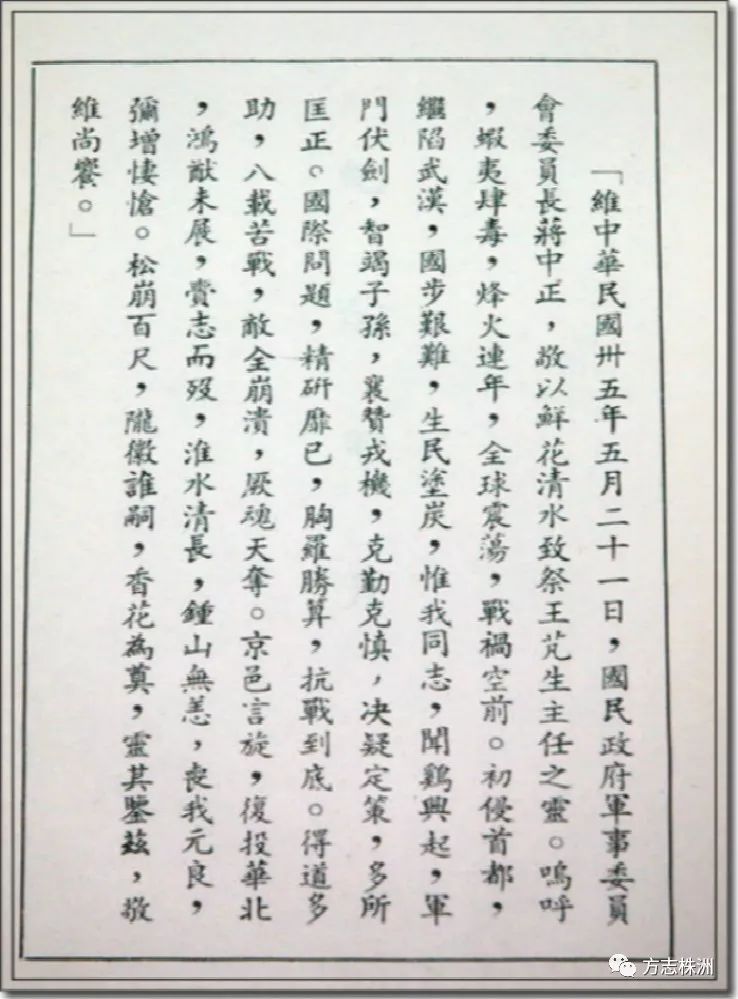 「維中華民國卅五年五月二十一日，國民政府軍事委員
會委員長蔣中正，敬以鮮花清水致祭王芃生主任之靈。嗚呼
，蝦夷肆毒，烽火連年，全球震蕩，戰禍空前。初侵首都，
繼陷武漢，國步艱難，生民塗炭，惟我同志，聞鷄興起，軍
門伏劍，智竭子孫，襄贊戎機，克勤克慎，決疑定策，多所
匡正。國際問題，精研靡已，胸羅勝算，抗戰到底。得道多
助，八載苦戰，敵全崩潰，厥魂天奪。京邑言旋，復投華北
，鴻猷未展，賫志而歿，淮水清長，鍾山無恙，喪我元良，
彌增悽愴。松崩百尺，隴徽誰嗣，香花為奠，靈其鑒茲，敬
維尚饗。」
方志株洲